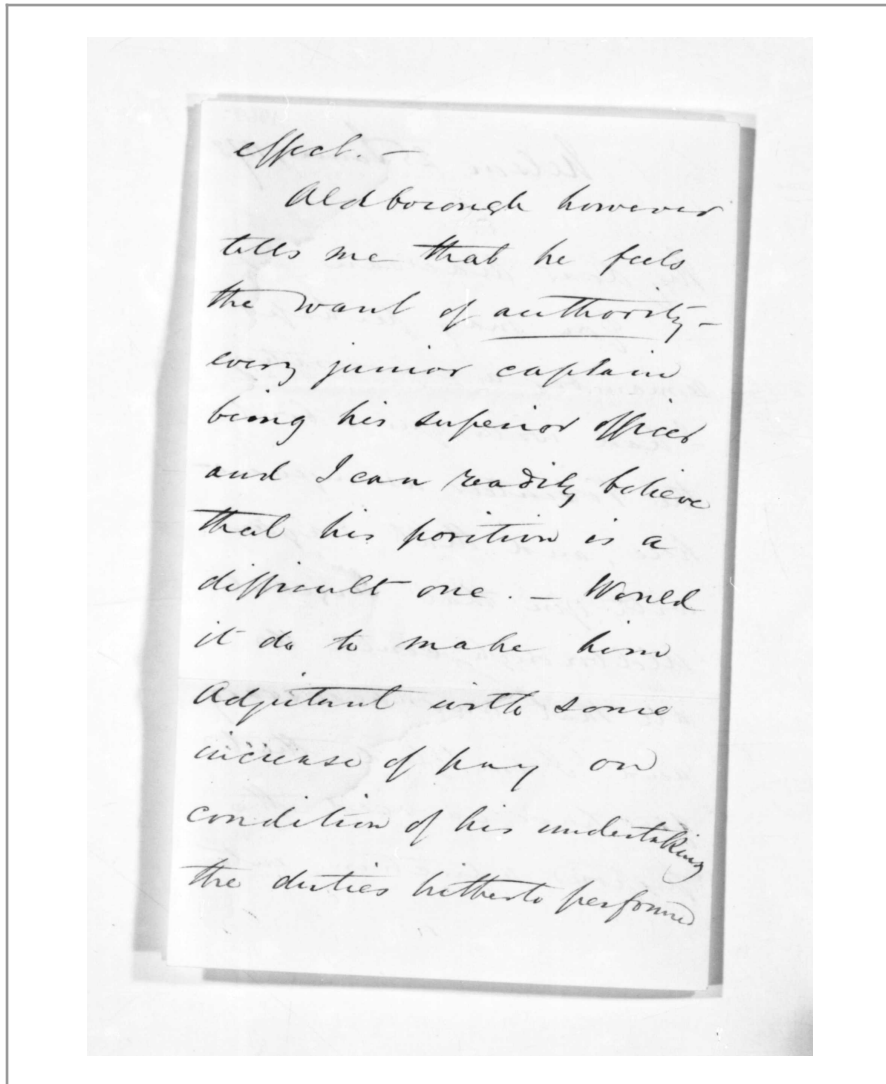 effect. —
Aldborough however
tells me that he feels
the want of authority —
every junior captain
being his superior officer
and I can readily believe
that his position is a
difficult one. — Would
it do to make him
Adjutant with some
increase of pay on
condition of his undertaking
the duties hitherto performed